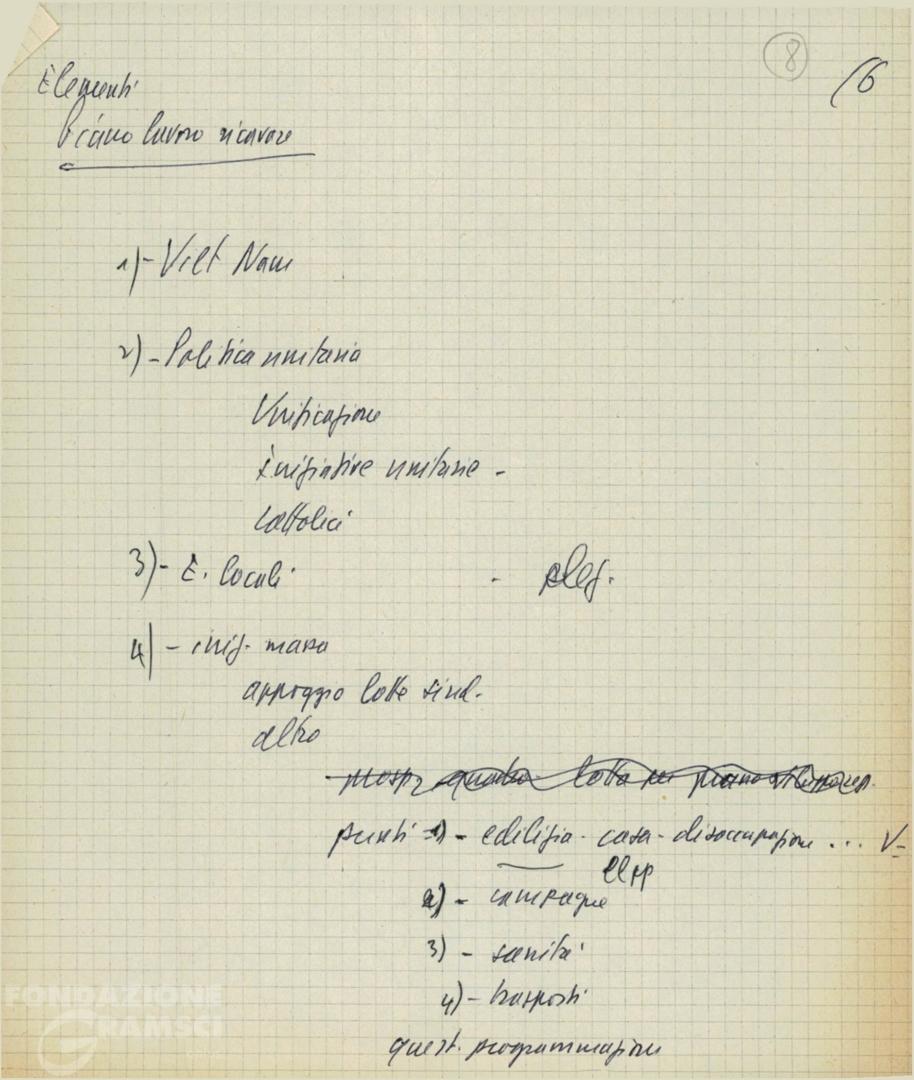 8
16
Elementi
Piano lavoro ricavare
1) - Viet Nam
2) - Politica unitaria
Unificazione
iniziative unitarie -
cattolici
3) - E. locali - elez.
4) - iniz. massa
appoggio lotte sind.
altro
quadro lotta per piano
punti 1) - edilizia - casa - disoccupazione ... V -
LLPP
2) - campagne
3) - sanità
4) - trasporti
quest. programmazione
FONDAZIONE
GRAMSCI